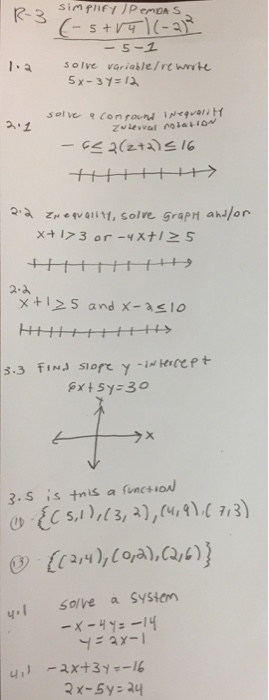 R-3 simplify/Pemdas
(-5+√4)(-2)²
-5-1
1.2 solve variable/rewrite
5x-3y=12
2.1 solve a compound inequality
interval notation
-6≤2(z+2)≤16
2.2 Inequality, solve graph and/or
x+1>3 or -4x+1≥5
2.2
x+1≥5 and x-2≤10
3.3 Find slope y-intercept
6x+5y=30
x
3.5 is this a function
(1) {(5,1),(3,2),(4,9),(7,3)
(3) {(2,4),(0,2),(2,6)}
4.1 solve a system
-x-4y=-14
y=2x-1
4.1 -2x+3y=-16
2x-5y=24